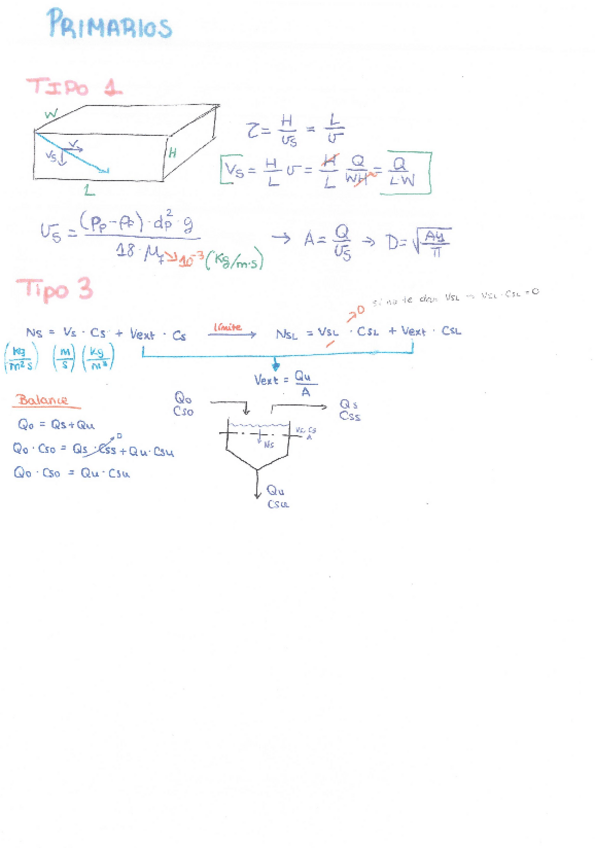 PRIMARIOS
TIPO 1
W
Vs
V
H
L
τ = H/vs = L/v
Vs = H/L v = H/L Q/WH = Q/L·W
vs = (ρp - ρf)·dp²·g / 18·μf → 10⁻³ (kg/m·s) → A = Q/vs → D = √(A4/π)
Tipo 3
si no te dan VSL → VSL·CSL = 0
0
Ns = Vs · Cs + Vext · Cs límite → NSL = VSL · CSL + Vext · CSL
(kg/m²s) (m/s) (kg/m³)
Vext = Qu/A
Balance
Qo = Qs + Qu
Qo · Cso = Qs · Css + Qu · Csu
0
Qo · Cso = Qu · Csu
Qo
Cso
Qs
Css
A
Ns
Qu
Csu